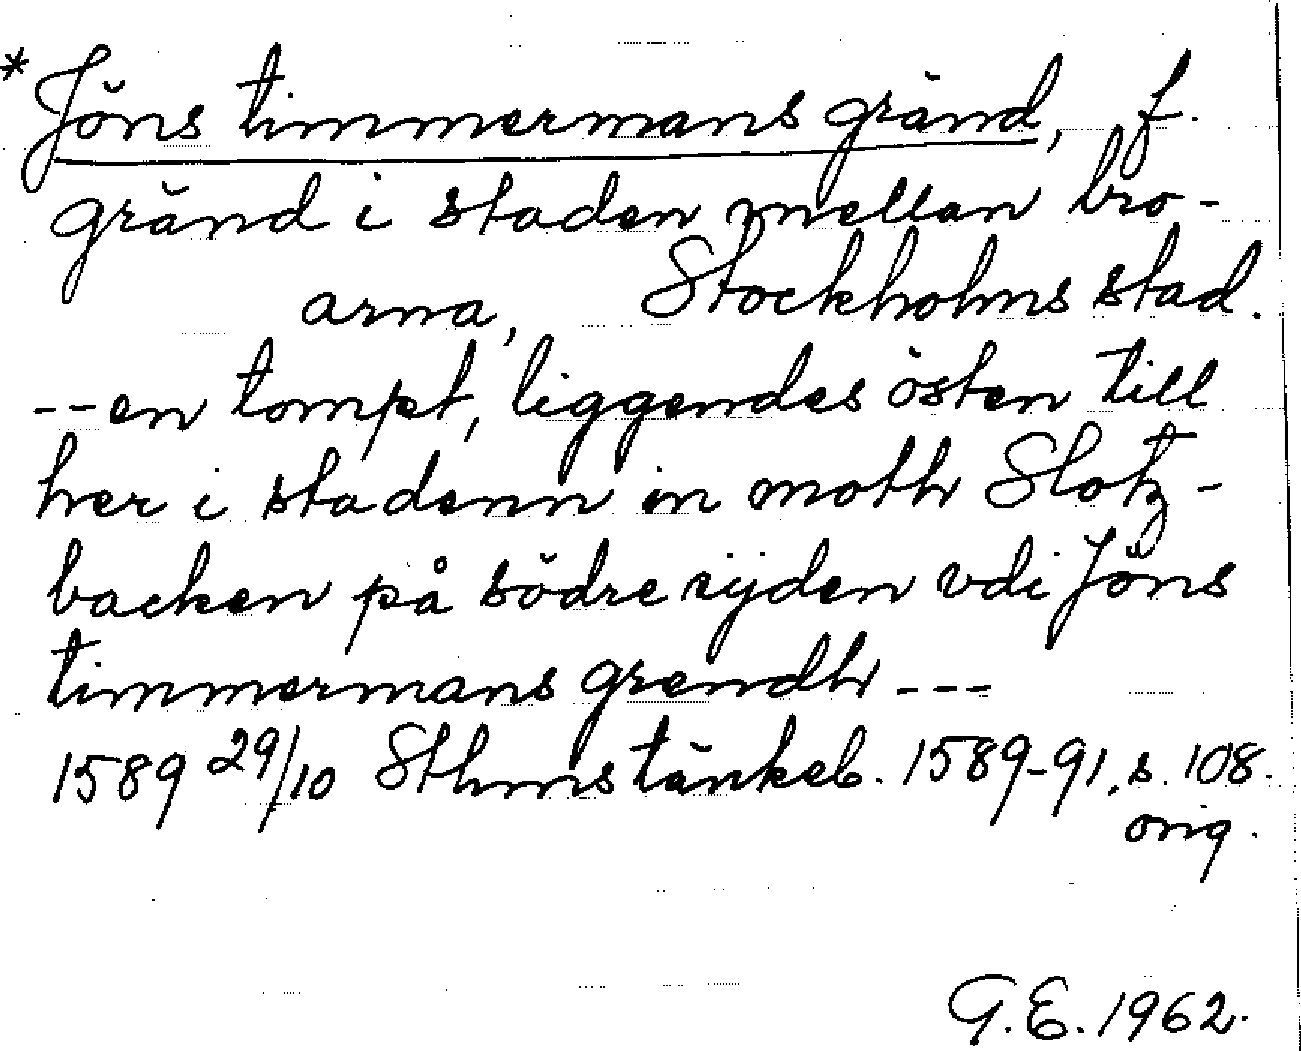 * Jöns timmermans gränd, f.
gränd i staden mellan bro-
arna, Stockholms stad.
-- en tompt, liggendes östen till
her i stadenn in moth Slotz-
backen på södre sijden vdi Jöns
timmermans grendh ---
1589 29/10 Sthms tänkeb. 1589-91, s. 108.
orig.
G.E. 1962.